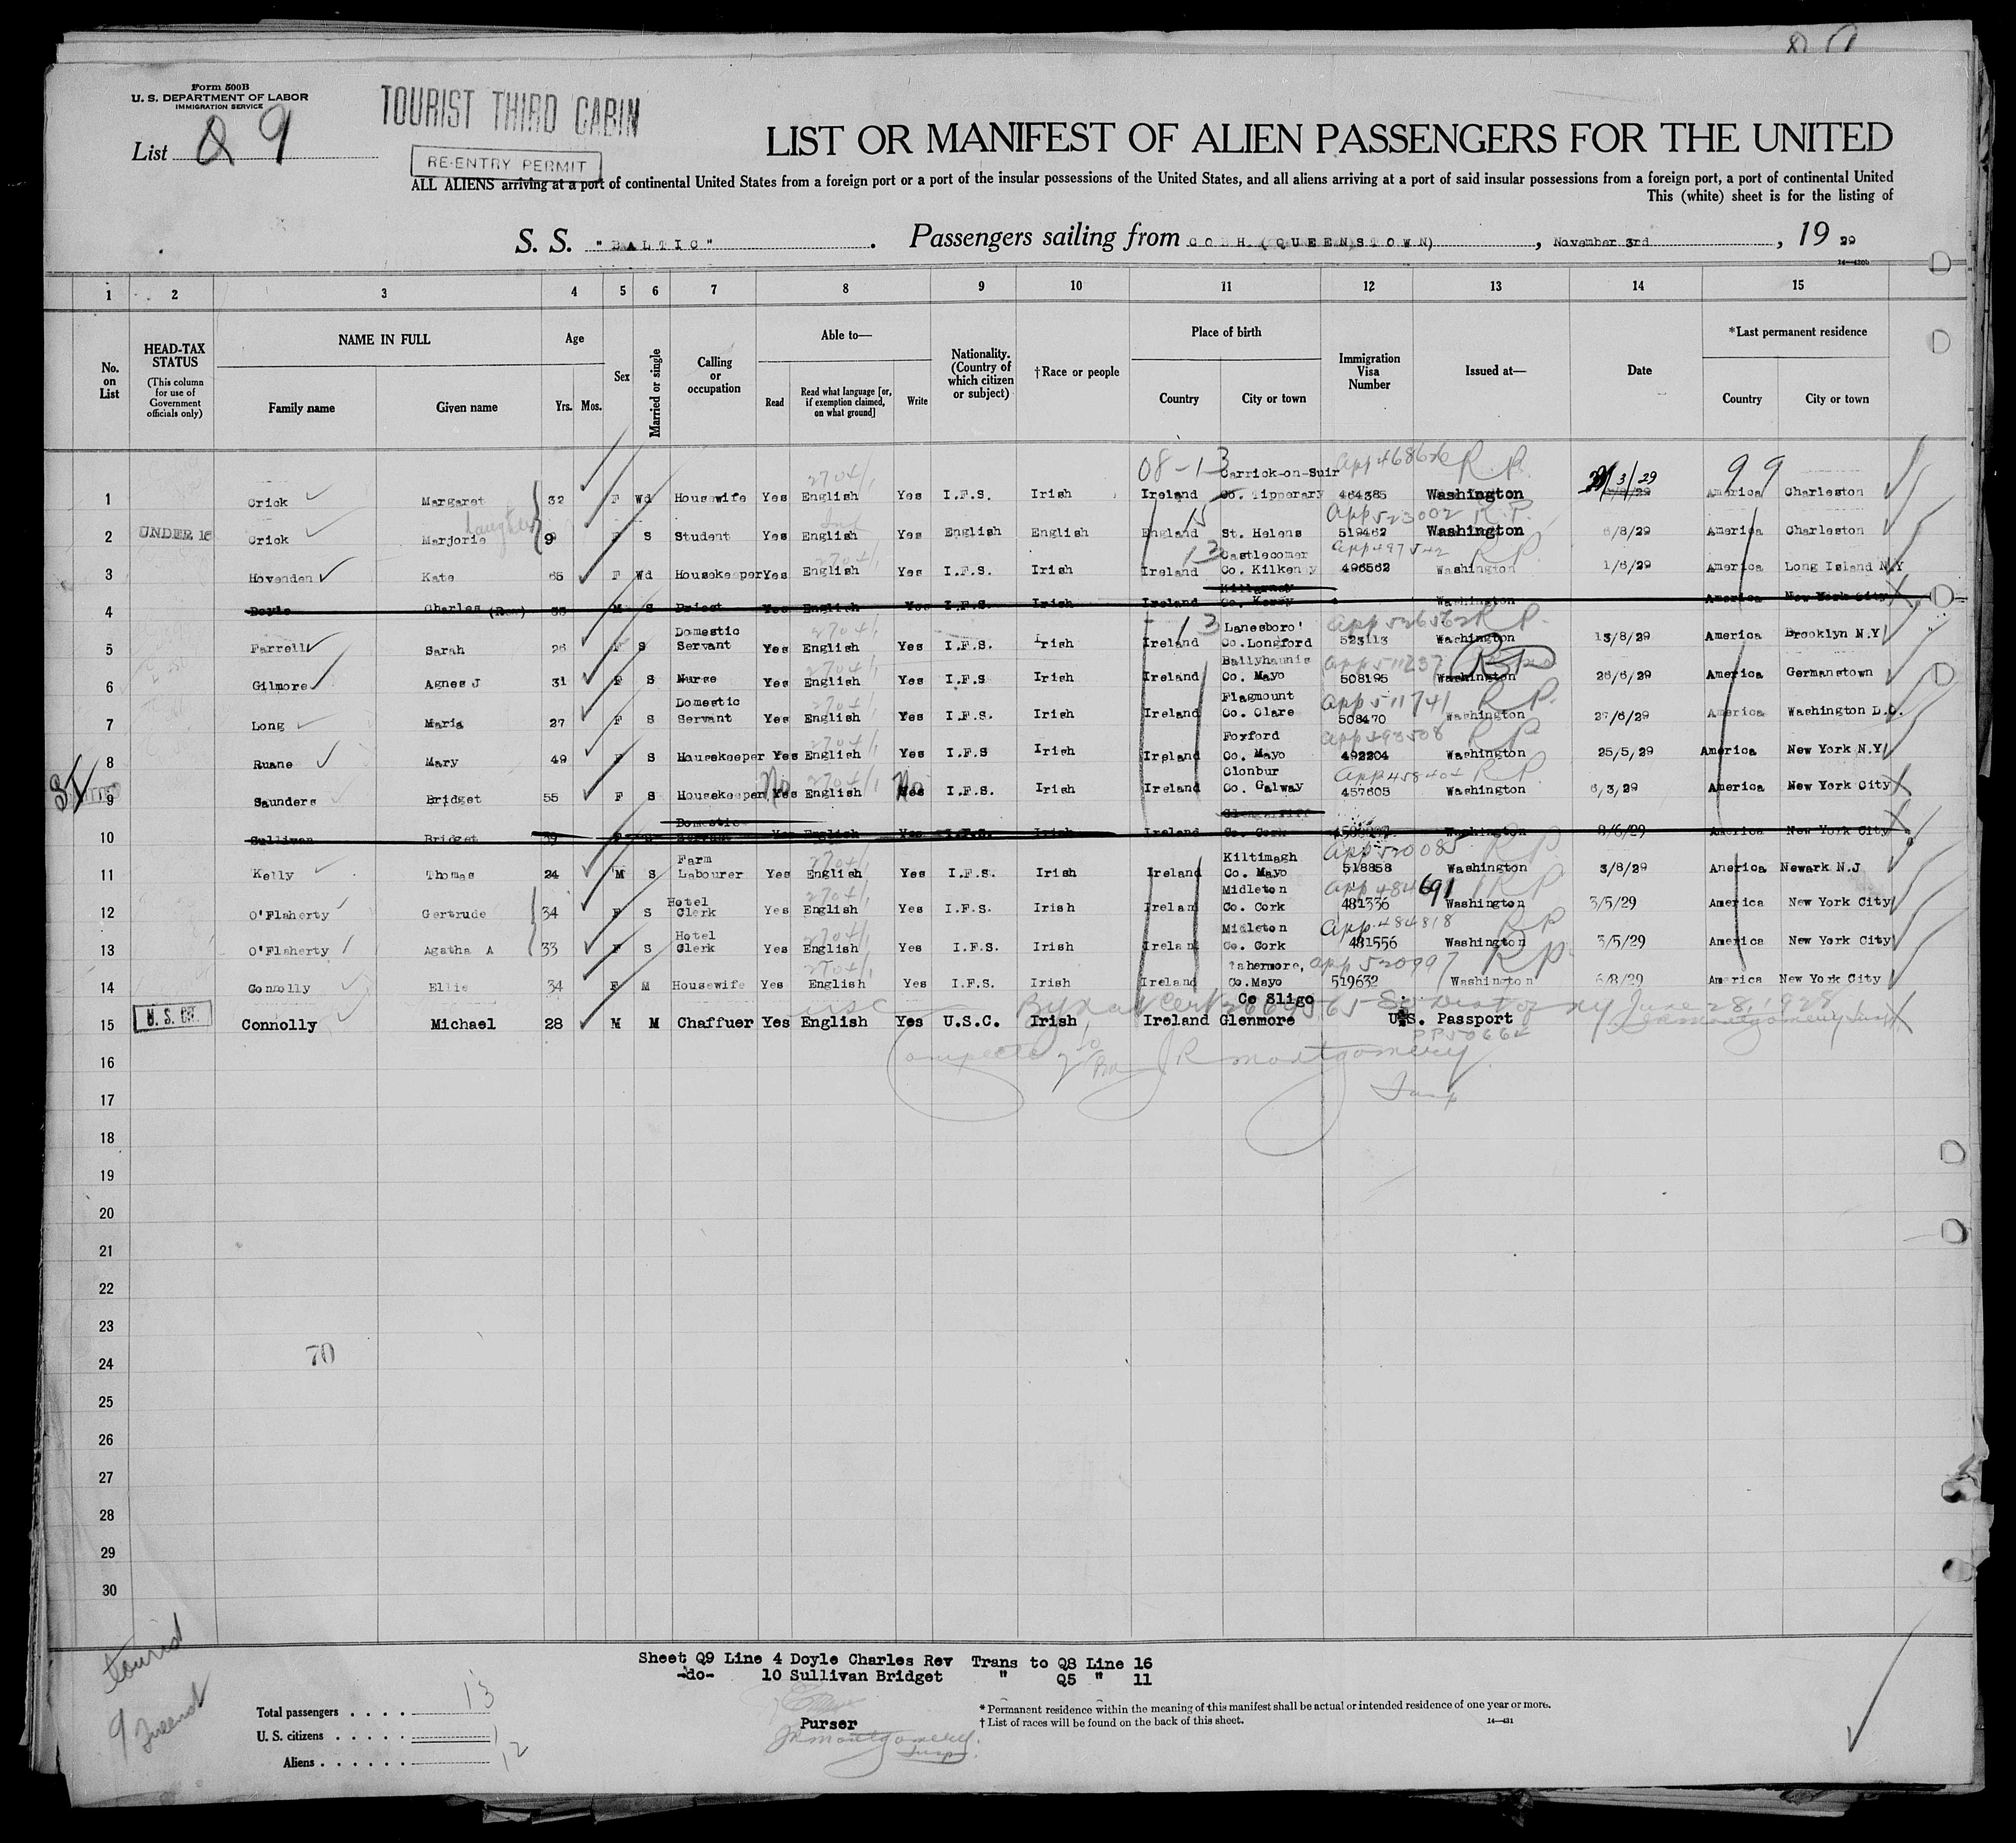 Form 500B
U. S. DEPARTMENT OF LABOR
IMMIGRATION SERVICE
TOURIST THIRD CABIN
List Q 9
RE-ENTRY PERMIT
LIST OR MANIFEST OF ALIEN PASSENGERS FOR THE UNITED
ALL ALIENS arriving at a port of continental United States from a foreign port or a port of the insular possessions of the United States, and all aliens arriving at a port of said insular possessions from a foreign port, a port of continental United
This (white) sheet is for the listing of
S. S. "BALTIC" . Passengers sailing from COBH (QUEENSTOWN) , November 3rd , 19 29
1 2 3 4 5 6 7 8 9 10 11 12 13 14 15
No. on List
HEAD-TAX STATUS (This column for use of Government officials only)
NAME IN FULL Family name Given name
Age Yrs. Mos.
Sex
Married or single
Calling or occupation
Able to— Read Read what language [or, if exemption claimed, on what ground] Write
Nationality. (Country of which citizen or subject)
†Race or people
Place of birth Country City or town
Immigration Visa Number
Issued at—
Date
*Last permanent residence Country City or town
08-13 Carrick-on-Suir app 468626 R.P. 3/29 99
1 Crick Margaret 32 F Wd Housewife Yes English Yes I.F.S. Irish Ireland Co. Tipperary 464385 Washington America Charleston
daughter 15 app 523002 R.P.
2 UNDER 16 Crick Marjorie 9 F S Student Yes English Yes English English England St. Helens 519462 Washington 6/8/29 America Charleston
2704/1 13 Castlecomer app 497542 RP
3 Hovenden Kate 65 F Wd Housekeeper Yes English Yes I.F.S. Irish Ireland Co. Kilkenny 496562 Washington 1/6/29 America Long Island N.Y
Killarney
4 Doyle Charles (Rev) 53 M S Priest Yes English Yes I.F.S. Irish Ireland Co. Kerry Washington America New York City
Domestic 2704/1 13 Lanesboro' app 526562 R.P.
5 Farrell Sarah 26 F S Servant Yes English Yes I.F.S. Irish Ireland Co.Longford 523113 Washington 13/8/29 America Brooklyn N.Y
2704/1 Ballyhaunis app 511237
6 Gilmore Agnes J 31 F S Nurse Yes English Yes I.F.S Irish Ireland Co. Mayo 508195 Washington 26/6/29 America Germanstown
Domestic 2704/1 Flagmount app 511741 R.P.
7 Long Maria 27 F S Servant Yes English Yes I.F.S. Irish Ireland Co. Clare 508470 Washington 27/6/29 America Washington D.C.
2704/1 Foxford app 493508 RP
8 Ruane Mary 49 F S Housekeeper Yes English Yes I.F.S Irish Ireland Co. Mayo 492204 Washington 25/5/29 America New York N.Y
No 2704/1 No Clonbur app 458404 RP
9 Saunders Bridget 55 F S Housekeeper Yes English Yes I.F.S. Irish Ireland Co. Galway 457605 Washington 6/3/29 America New York City
Domestic Glengariff
10 Sullivan Bridget 39 F S Servant Yes English Yes I.F.S. Irish Ireland Co. Cork Washington 8/6/29 America New York City
Farm 2704/1 Kiltimagh app 520085 RP
11 Kelly Thomas 24 M S Labourer Yes English Yes I.F.S. Irish Ireland Co. Mayo 518858 Washington 3/8/29 America Newark N.J
Hotel 2704/1 Midleton app 484691 RP
12 O'Flaherty Gertrude 34 F S Clerk Yes English Yes I.F.S. Irish Ireland Co. Cork 481336 Washington 3/5/29 America New York City
Hotel 2704/1 Midleton app 484818 RP
13 O'Flaherty Agatha A 33 F S Clerk Yes English Yes I.F.S. Irish Ireland Co. Cork 481556 Washington 3/5/29 America New York City
2704/1 app 520997 RP
14 Connolly Ellie 34 F M Housewife Yes English Yes I.F.S. Irish Ireland Co.Mayo 519632 Washington 6/8/29 America New York City
usc Co Sligo Dist of NY June 28, 1928
15 Connolly Michael 28 M M Chaffuer Yes English Yes U.S.C. Irish Ireland Glenmore U.S. Passport
J R Montgomery
16
Insp
17
18
19
20
21
22
23
24 70
25
26
27
28
29
30
tourist
Sheet Q9 Line 4 Doyle Charles Rev Trans to Q8 Line 16
-do- 10 Sullivan Bridget " Q5 " 11
Total passengers . . . . 13
U. S. citizens . . . . . 1
Aliens . . . . . . 12
Purser
JR Montgomery
Insp.
* Permanent residence within the meaning of this manifest shall be actual or intended residence of one year or more.
† List of races will be found on the back of this sheet.
14—431